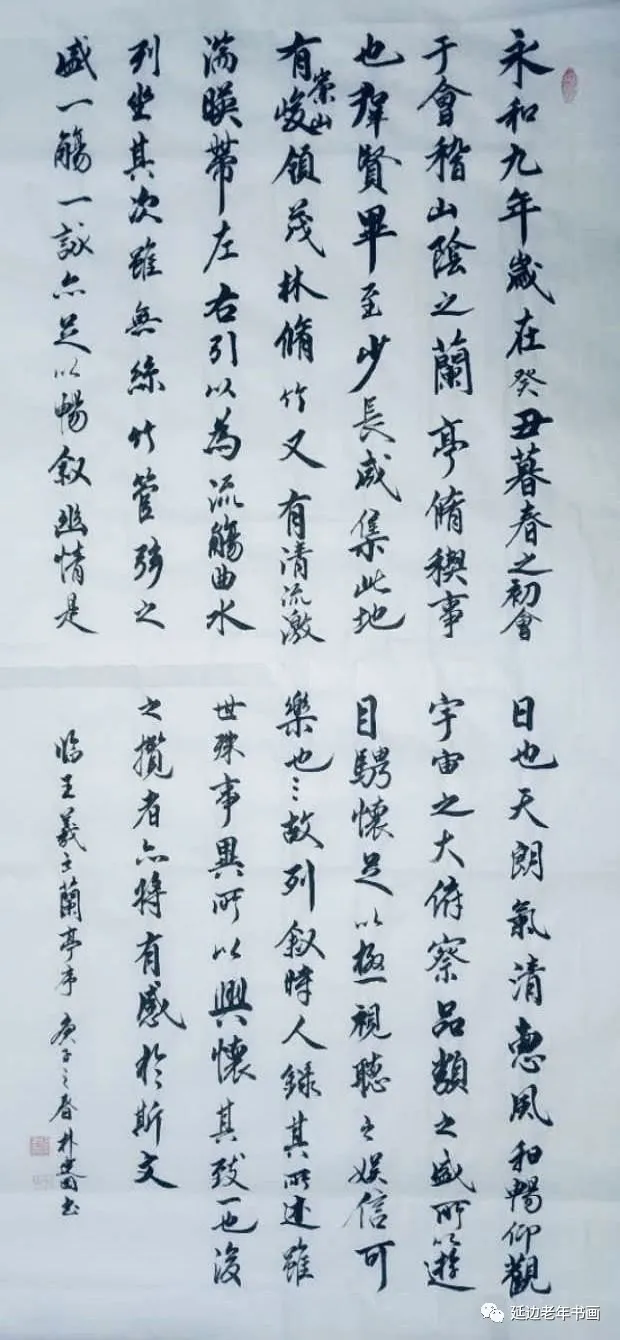 永和九年歲在癸丑暮春之初會
于會稽山陰之蘭亭脩稧事
也羣賢畢至少長咸集此地
有崇山峻領茂林脩竹又有清流激
湍暎帶左右引以為流觴曲水
列坐其次雖無絲竹管弦之
盛一觴一詠亦足以暢叙幽情是
日也天朗氣清惠風和暢仰觀
宇宙之大俯察品類之盛所以遊
目騁懷足以極視聽之娱信可
樂也…故列叙時人錄其所述雖
世殊事異所以興懷其致一也後
之攬者亦將有感於斯文
临王羲之蘭亭序 庚子之春朴书
延边老年书画